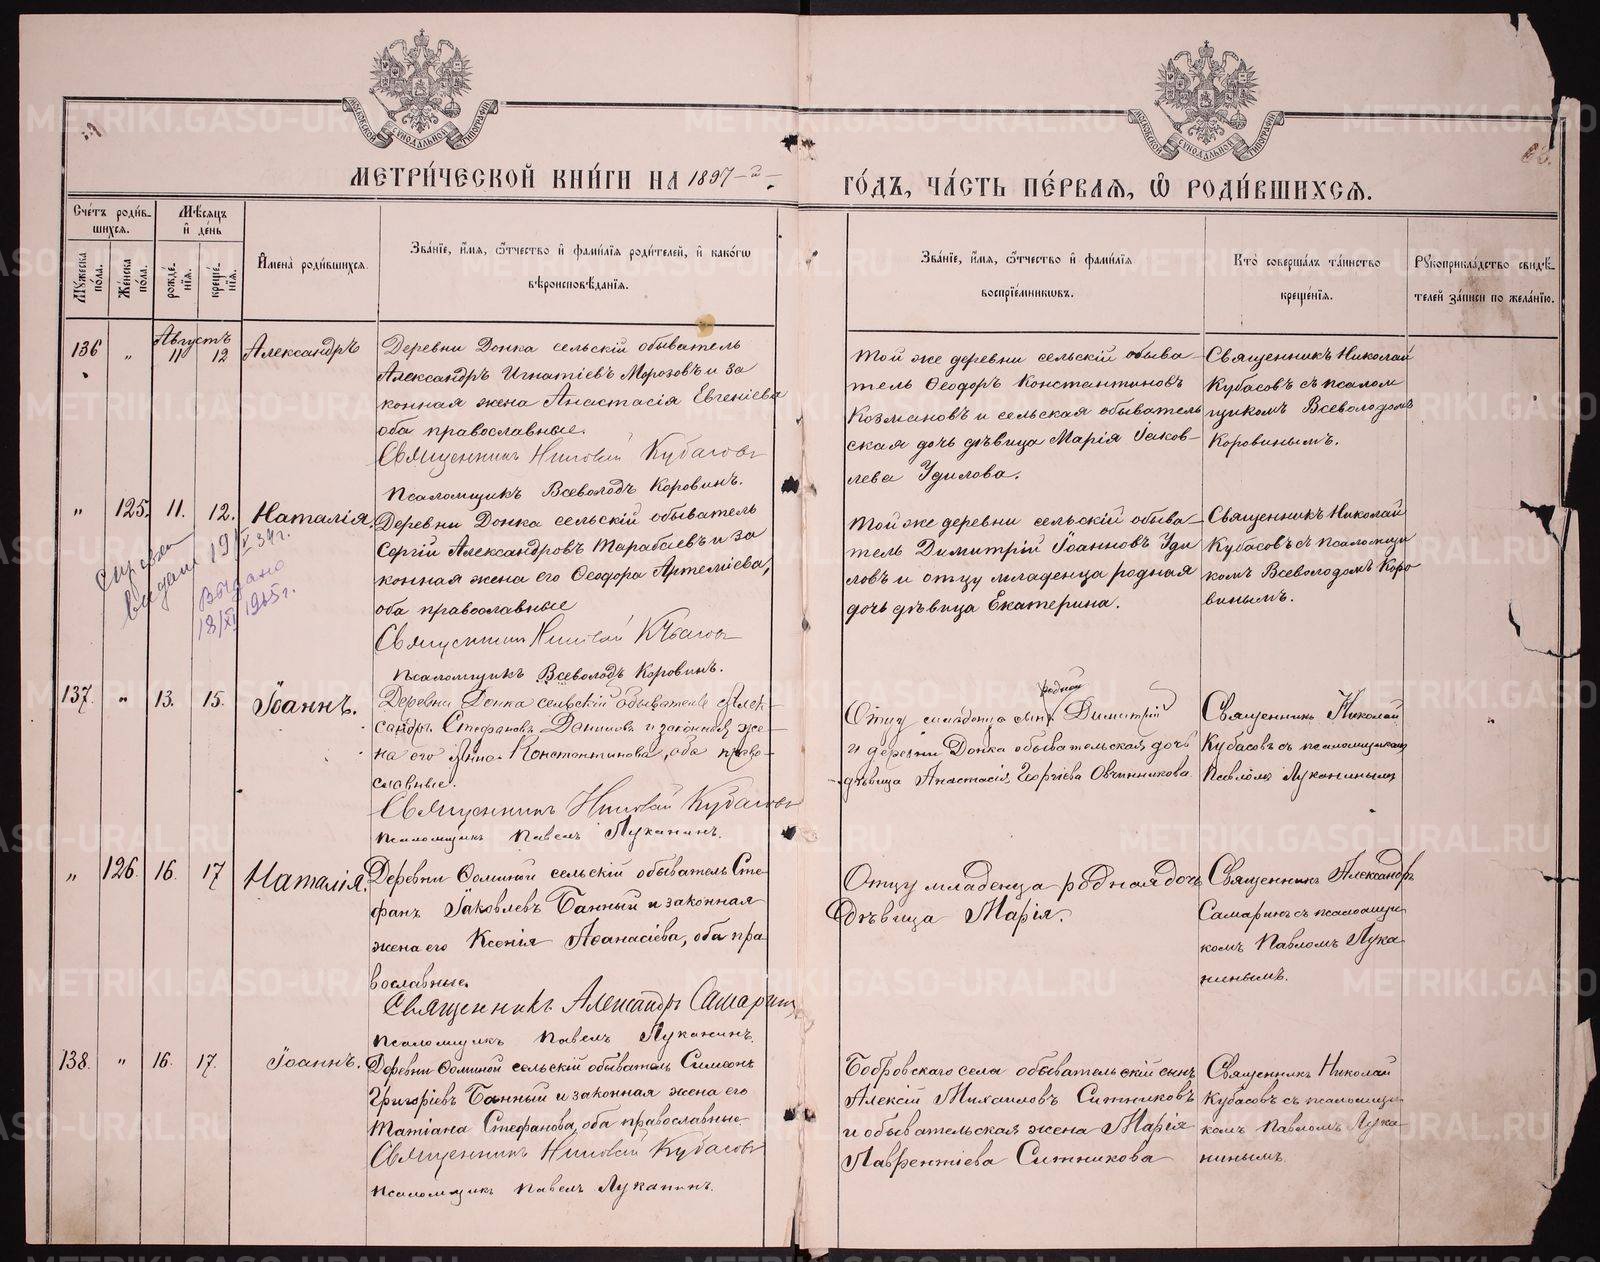 МЕТРИ́ЧЕСКОЙ КНИ́ГИ НА 1897-й
ГО́ДЪ, ЧА́СТЬ ПЕ́РВАѦ, Ѽ РОДИ́ВШИХСѦ.
МОСКОВСКОЙ СѴНОДАЛЬНОЙ ТИПОГРАФІИ
МОСКОВСКОЙ СѴНОДАЛЬНОЙ ТИПОГРАФІИ
Сче́тъ роди́вшихсѧ.
Мѣ́сѧцъ и҆ де́нь
Мꙋ́жеска по́ла.
Же́нска по́ла.
рожде́нїѧ.
креще́нїѧ.
И҆мена̀ роди́вшихсѧ.
Зва́нїе, и҆́мѧ, ѻ҆́тчество и҆ фами́лїѧ роди́телей, и҆ како́гѡ
вѣроисповѣ́данїѧ.
Зва́нїе, и҆́мѧ, ѻ҆́тчество и҆ фами́лїѧ
воспрїе́мникѡвъ.
Кто̀ соверша́лъ та́инство
креще́нїѧ.
Рꙋкоприкла́дство свидѣ́телей за́писи по жела́нїю.
136 „ Августъ 11 12 Александръ
Деревни Донка сельскій обыватель
Александръ Игнатіевъ Морозовъ и за
конная жена Анастасія Евгеніева
оба православные.
Священникъ Николай Кубасовъ
Псаломщикъ Всеволодъ Коровинъ.
Той же деревни сельскій обыва-
тель Ѳеодоръ Константиновъ
Козмановъ и сельская обыватель
ская дочь дѣвица Марія Іаков-
лева Удилова.
Священникъ Николай
Кубасовъ съ псалом
щикомъ Всеволодомъ
Коровинымъ.
„ 125. 11. 12. Наталія.
видано 19 X 34 г.
Выдано
18/XI 1965 г.
Деревни Донка сельскій обыватель
Сергій Александровъ Тарабаевъ и за
конная жена его Ѳеодора Артеміева,
оба православные
Священникъ Николай Кубасовъ
Псаломщикъ Всеволодъ Коровинъ.
Той же деревни сельскій обыва-
тель Димитрій Іоанновъ Уди
ловъ и отцу младенца родная
дочь дѣвица Екатерина.
Священникъ Николай
Кубасовъ съ псаломщи
комъ Всеволодомъ Коро
винымъ.
137. „ 13. 15. Іоаннъ.
Деревни Донка сельскій обыватель Алек-
сандръ Стефановъ Даниловъ и законная же-
на его Анна Константинова, оба право-
славные.
Священникъ Николай Кубасовъ
Псаломщикъ Павелъ Луканинъ.
родной
Отцу младенца сынъ Димитрій
и деревни Донка обывательская дочь
дѣвица Анастасія Георгіева Овчинникова
Священникъ Николай
Кубасовъ съ псаломщикомъ
Павломъ Луканинымъ
„ 126. 16. 17 Наталія.
Деревни Ѳоминой сельскій обыватель Сте
фанъ Іаковлевъ Банный и законная
жена его Ксенія Аѳанасіева, оба пра
вославные.
Священникъ Александръ Самаринъ
Псаломщикъ Павелъ Луканинъ.
Отцу младенца родная дочь
дѣвица Марія.
Священникъ Александръ
Самаринъ съ псаломщи
комъ Павломъ Лука
нинымъ.
138. „ 16. 17. Іоаннъ.
Деревни Ѳоминой сельскій обыватель Симеонъ
Григоріевъ Банный и законная жена его
Татіана Стефанова, оба православные
Священникъ Николай Кубасовъ
Псаломщикъ Павелъ Луканинъ.
Бобровскаго села обывательскій сынъ
Алексій Михаиловъ Ситниковъ
и обывательская жена Марія
Лаврентіева Ситникова
Священникъ Николай
Кубасовъ съ псаломщи
комъ Павломъ Лука
нинымъ.
METRIKI.GASO-URAL.RU